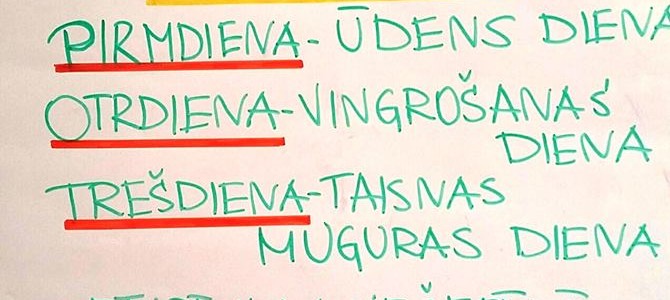 PIRMDIENA- ŪDENS DIENA
OTRDIENA-VINGROŠANAS
DIENA
TREŠDIENA-TAISNAS
MUGURAS DIENA